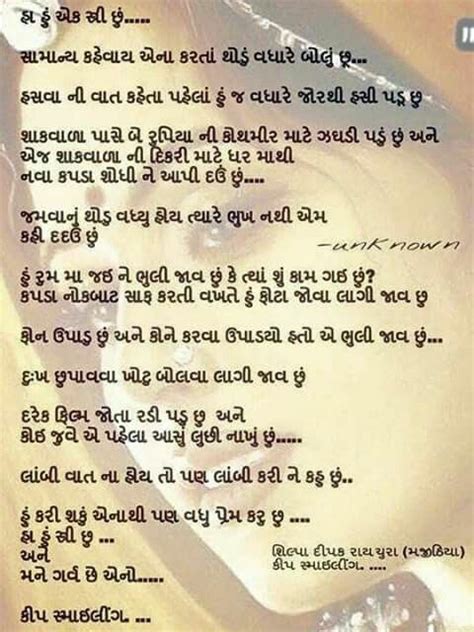 હા હું એક સ્ત્રી છું.....
સામાન્ય કહેવાય એના કરતાં થોડું વધારે બોલું છુ...
હસવા ની વાત કહેતા પહેલાં હું જ વધારે જોરથી હસી પડૂ છુ
શાકવાળા પાસે બે રુપિયા ની કોથમીર માટે ઝઘડી પડું છું અને
એજ શાકવાળા ની દિકરી માટે ઘર માથી
નવા કપડા શોધી ને આપી દઉં છું....
જમવાનું થોડુ વધ્યુ હોય ત્યારે ભુખ નથી એમ
કહી દદઉં છું
-unknown
હું રુમ મા જઇ ને ભુલી જાવ છું કે ત્યાં શું કામ ગઇ છું?
કપડા નોકબાટ સાફ કરતી વખતે હું ફોટા જોવા લાગી જાવ છુ
ફોન ઉપાડુ છું અને કોને કરવા ઉપાડયો હતો એ ભુલી જાવ છું...
દુઃખ છુપાવવા ખોટુ બોલવા લાગી જાવ છું
દરેક ફિલ્મ જોતા રડી પડુ છુ અને
કોઇ જુવે એ પહેલા આસું લુછી નાખું છું.....
લાંબી વાત ના હોય તો પણ લાંબી કરી ને કહુ છું..
હું કરી શકું એનાથી પણ વધુ પ્રેમ કરુ છુ ....
હા હું સ્ત્રી છુ ...
અને
મને ગર્વ છે એનો.....
શિલ્પા દીપક રાયચુરા (મજીઠિયા)
કીપ સ્માઇલીંગ. ....
કીપ સ્માઇલીંગ. ...